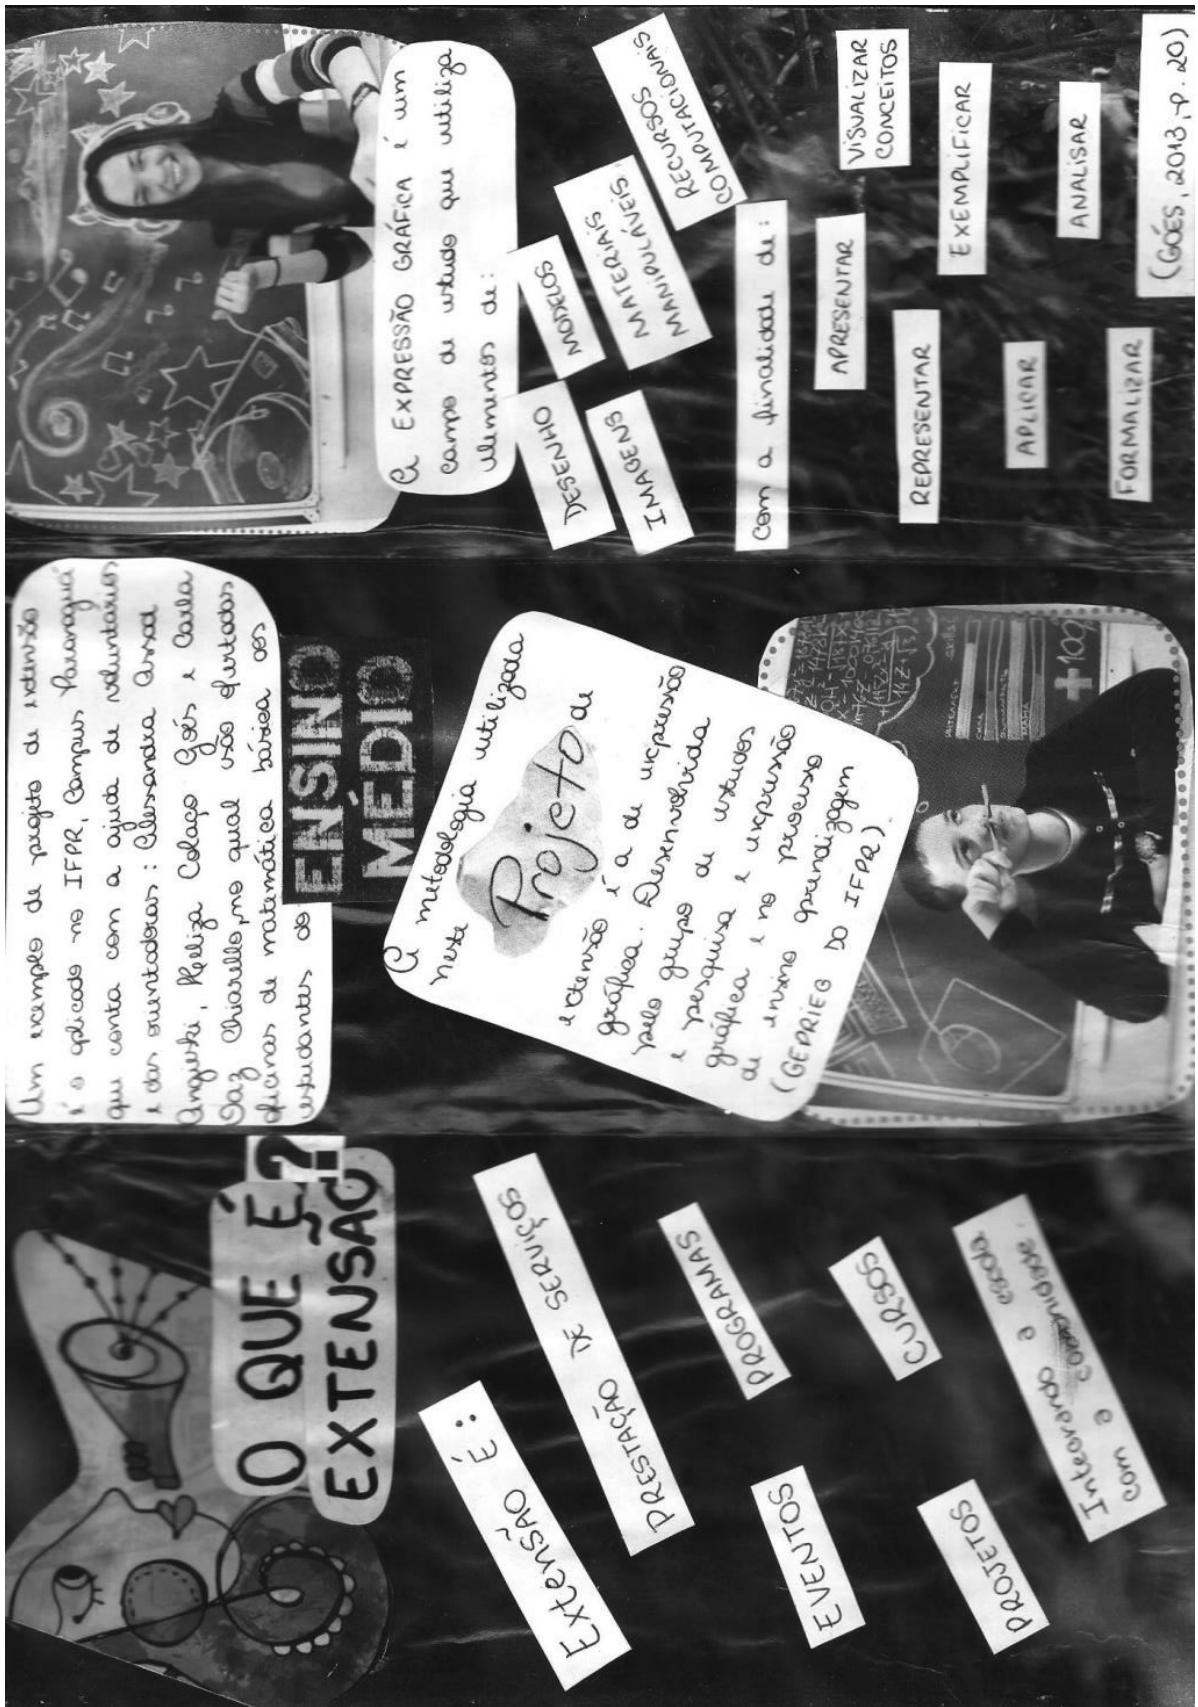 O QUE É?!
EXTENSÃO
Extensão É:
PRESTAÇÃO DE SERVIÇOS
PROGRAMAS
EVENTOS
CURSOS
PROJETOS
Integrando a escola
com a comunidade.
Um exemplo de projeto de extensão
é o aplicado no IFPR, Campus Paranaguá
que conta com a ajuda de voluntários
e das orientadoras: Alessandra Assad
Angieski, Heliza Colaço Góes e Carla
Saz Chiarello, no qual são ofertadas
oficinas de matemática básica aos
estudantes do
ENSINO
MÉDIO
A metodologia utilizada
neste
Projeto de
extensão é a de expressão
gráfica. Desenvolvida
pelo grupo de estudos
e pesquisa e expressão
gráfica e no processo
de ensino aprendizagem
(GEPRIEG DO IFPR).
+100
A EXPRESSÃO GRÁFICA é um
campo de estudo que utiliza
elementos de:
DESENHO
MODELOS
IMAGENS
MATERIAIS
MANIPULÁVEIS
RECURSOS
COMPUTACIONAIS
com a finalidade de:
APRESENTAR
VISUALIZAR
CONCEITOS
REPRESENTAR
EXEMPLIFICAR
APLICAR
ANALISAR
FORMALIZAR
(GÓES, 2013, p. 20)